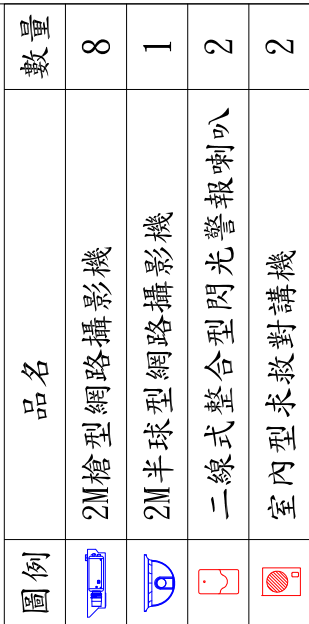 圖例 品名 數量
2M槍型網路攝影機 8
2M半球型網路攝影機 1
二線式整合型閃光警報喇叭 2
室內型求救對講機 2